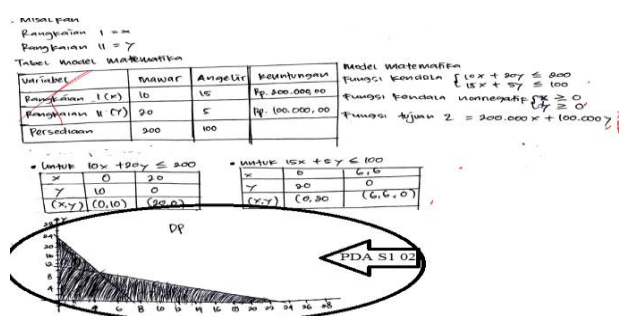 . Misalkan
Rangkaian I = x
Rangkaian II = y
Tabel model matematika
Variabel | Mawar | Angelir | Keuntungan
Rangkaian I (x) | 10 | 15 | Rp. 200.000,00
Rangkaian II (Y) | 20 | 5 | Rp. 100.000,00
Persediaan | 200 | 100
Model Matematika
Fungsi kendala { 10x + 20y ≤ 200
15x + 5y ≤ 100
Fungsi kendala nonnegatif { x ≥ 0
y ≥ 0
Fungsi tujuan Z = 200.000x + 100.000y
• Untuk 10x + 20y ≤ 200
x | 0 | 20
y | 10 | 0
(x,y) | (0,10) | (20,0)
• Untuk 15x + 5y ≤ 100
x | 0 | 6,6
y | 20 | 0
(x,y) | (0,20 | (6,6,0)
DP
PDA S1 02
24
20
16
12
8
4
4 6 8 10 12 14 16 18 20 22 24 26 28